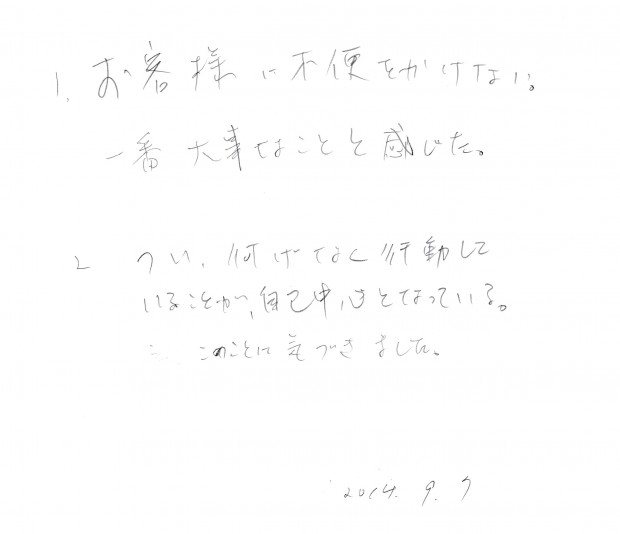 1. お客様に不便をかけない。
一番大事なことと感じた。
2 つい、何げなく行動して
いることが、自己中心となっている。
このことに気づきました。
2014. 9. 7